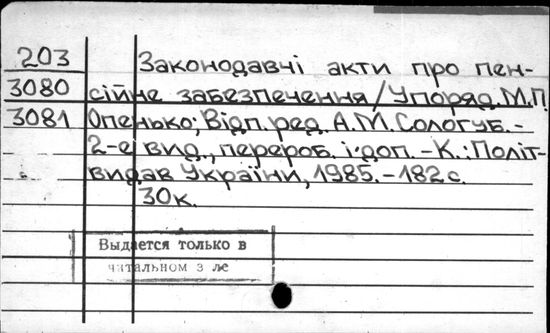 203 Законодавчі акти про пен-
3080 сійне забезпечення/Упоряд.М.П.
3081 Опенько; Відп.ред. А.М.Сологуб.-
2-е вид., перероб. і доп. -К.: Політ-
видав України, 1985.-182с.
30к.
Выдается только в
читальном з ле